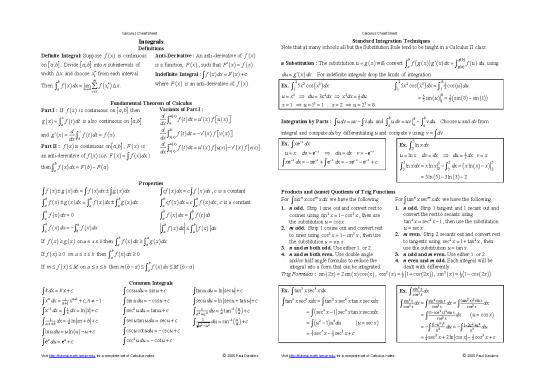 Calculus Cheat Sheet
Integrals
Definitions
Definite Integral: Suppose f(x) is continuous
on [a,b]. Divide [a,b] into n subintervals of
width Δx and choose x_i^* from each interval.
Then ∫_a^b f(x)dx = lim_{n→∞} Σ_{i=1}^{n} f(x_i^*)Δx.
Anti-Derivative : An anti-derivative of f(x)
is a function, F(x), such that F′(x) = f(x).
Indefinite Integral : ∫f(x)dx = F(x)+c
where F(x) is an anti-derivative of f(x).
Fundamental Theorem of Calculus
Part I : If f(x) is continuous on [a,b] then
g(x) = ∫_a^x f(t)dt is also continuous on [a,b]
and g′(x) = d/dx ∫_a^x f(t)dt = f(x).
Part II : f(x) is continuous on [a,b], F(x) is
an anti-derivative of f(x) (i.e. F(x) = ∫f(x)dx)
then ∫_a^b f(x)dx = F(b) − F(a).
Variants of Part I :
d/dx ∫_a^{u(x)} f(t)dt = u′(x)f[u(x)]
d/dx ∫_{v(x)}^b f(t)dt = −v′(x)f[v(x)]
d/dx ∫_{v(x)}^{u(x)} f(t)dt = u′(x)f[u(x)] − v′(x)f[v(x)]
Properties
∫f(x)±g(x)dx = ∫f(x)dx ± ∫g(x)dx
∫_a^b f(x)±g(x)dx = ∫_a^b f(x)dx ± ∫_a^b g(x)dx
∫_a^a f(x)dx = 0
∫_a^b f(x)dx = −∫_b^a f(x)dx
∫cf(x)dx = c∫f(x)dx, c is a constant
∫_a^b cf(x)dx = c∫_a^b f(x)dx, c is a constant
∫_a^b f(x)dx = ∫_a^b f(t)dt
|∫_a^b f(x)dx| ≤ ∫_a^b |f(x)|dx
If f(x) ≥ g(x) on a ≤ x ≤ b then ∫_a^b f(x)dx ≥ ∫_a^b g(x)dx
If f(x) ≥ 0 on a ≤ x ≤ b then ∫_a^b f(x)dx ≥ 0
If m ≤ f(x) ≤ M on a ≤ x ≤ b then m(b−a) ≤ ∫_a^b f(x)dx ≤ M(b−a)
Common Integrals
∫k dx = kx + c
∫x^n dx = 1/(n+1) x^{n+1} + c, n ≠ −1
∫x^{-1} dx = ∫1/x dx = ln|x| + c
∫1/(ax+b) dx = 1/a ln|ax+b| + c
∫ln u du = u ln(u) − u + c
∫e^u du = e^u + c
∫cos u du = sin u + c
∫sin u du = −cos u + c
∫sec² u du = tan u + c
∫sec u tan u du = sec u + c
∫csc u cot u du = −csc u + c
∫csc² u du = −cot u + c
∫tan u du = ln|sec u| + c
∫sec u du = ln|sec u + tan u| + c
∫1/(a²+u²) du = 1/a tan^{-1}(u/a) + c
∫1/√(a²−u²) du = sin^{-1}(u/a) + c
Visit http://tutorial.math.lamar.edu for a complete set of Calculus notes.
© 2005 Paul Dawkins
Calculus Cheat Sheet
Standard Integration Techniques
Note that at many schools all but the Substitution Rule tend to be taught in a Calculus II class.
u Substitution : The substitution u = g(x) will convert ∫_a^b f(g(x))g′(x)dx = ∫_{g(a)}^{g(b)} f(u) du using
du = g′(x)dx. For indefinite integrals drop the limits of integration.
Ex. ∫_1^2 5x² cos(x³)dx
u = x³ ⇒ du = 3x²dx ⇒ x²dx = 1/3 du
x = 1 ⇒ u = 1³ = 1 :: x = 2 ⇒ u = 2³ = 8
∫_1^2 5x² cos(x³)dx = ∫_1^8 5/3 cos(u)du
= 5/3 sin(u)|_1^8 = 5/3 (sin(8) − sin(1))
Integration by Parts : ∫u dv = uv − ∫v du and ∫_a^b u dv = uv|_a^b − ∫_a^b v du. Choose u and dv from
integral and compute du by differentiating u and compute v using v = ∫dv.
Ex. ∫xe^{-x} dx
u = x dv = e^{-x} ⇒ du = dx v = −e^{-x}
∫xe^{-x} dx = −xe^{-x} + ∫e^{-x} dx = −xe^{-x} − e^{-x} + c
Ex. ∫_3^5 ln x dx
u = ln x dv = dx ⇒ du = 1/x dx v = x
∫_3^5 ln x dx = x ln x|_3^5 − ∫_3^5 dx = (x ln(x) − x)|_3^5
= 5ln(5) − 3ln(3) − 2
Products and (some) Quotients of Trig Functions
For ∫sin^n x cos^m x dx we have the following :
1. n odd. Strip 1 sine out and convert rest to
cosines using sin² x = 1 − cos² x, then use
the substitution u = cos x.
2. m odd. Strip 1 cosine out and convert rest
to sines using cos² x = 1 − sin² x, then use
the substitution u = sin x.
3. n and m both odd. Use either 1. or 2.
4. n and m both even. Use double angle
and/or half angle formulas to reduce the
integral into a form that can be integrated.
For ∫tan^n x sec^m x dx we have the following :
1. n odd. Strip 1 tangent and 1 secant out and
convert the rest to secants using
tan² x = sec² x − 1, then use the substitution
u = sec x.
2. m even. Strip 2 secants out and convert rest
to tangents using sec² x = 1 + tan² x, then
use the substitution u = tan x.
3. n odd and m even. Use either 1. or 2.
4. n even and m odd. Each integral will be
dealt with differently.
Trig Formulas : sin(2x) = 2sin(x)cos(x), cos²(x) = 1/2 (1 + cos(2x)), sin²(x) = 1/2 (1 − cos(2x))
Ex. ∫tan³ x sec⁵ x dx
∫tan³ x sec⁵ x dx = ∫tan² x sec⁴ x tan x sec x dx
= ∫(sec² x − 1) sec⁴ x tan x sec x dx
= ∫(u² − 1)u⁴ du (u = sec x)
= 1/7 sec⁷ x − 1/5 sec⁵ x + c
Ex. ∫ sin⁵ x / cos³ x dx
∫ sin⁵ x / cos³ x dx = ∫ sin⁴ x sin x / cos³ x dx = ∫ (sin² x)² sin x / cos³ x dx
= ∫ (1 − cos² x)² sin x / cos³ x dx (u = cos x)
= −∫ (1 − u²)² / u³ du = −∫ (1 − 2u² + u⁴) / u³ du
= 1/2 sec² x + 2 ln|cos x| − 1/2 cos² x + c
Visit http://tutorial.math.lamar.edu for a complete set of Calculus notes.
© 2005 Paul Dawkins